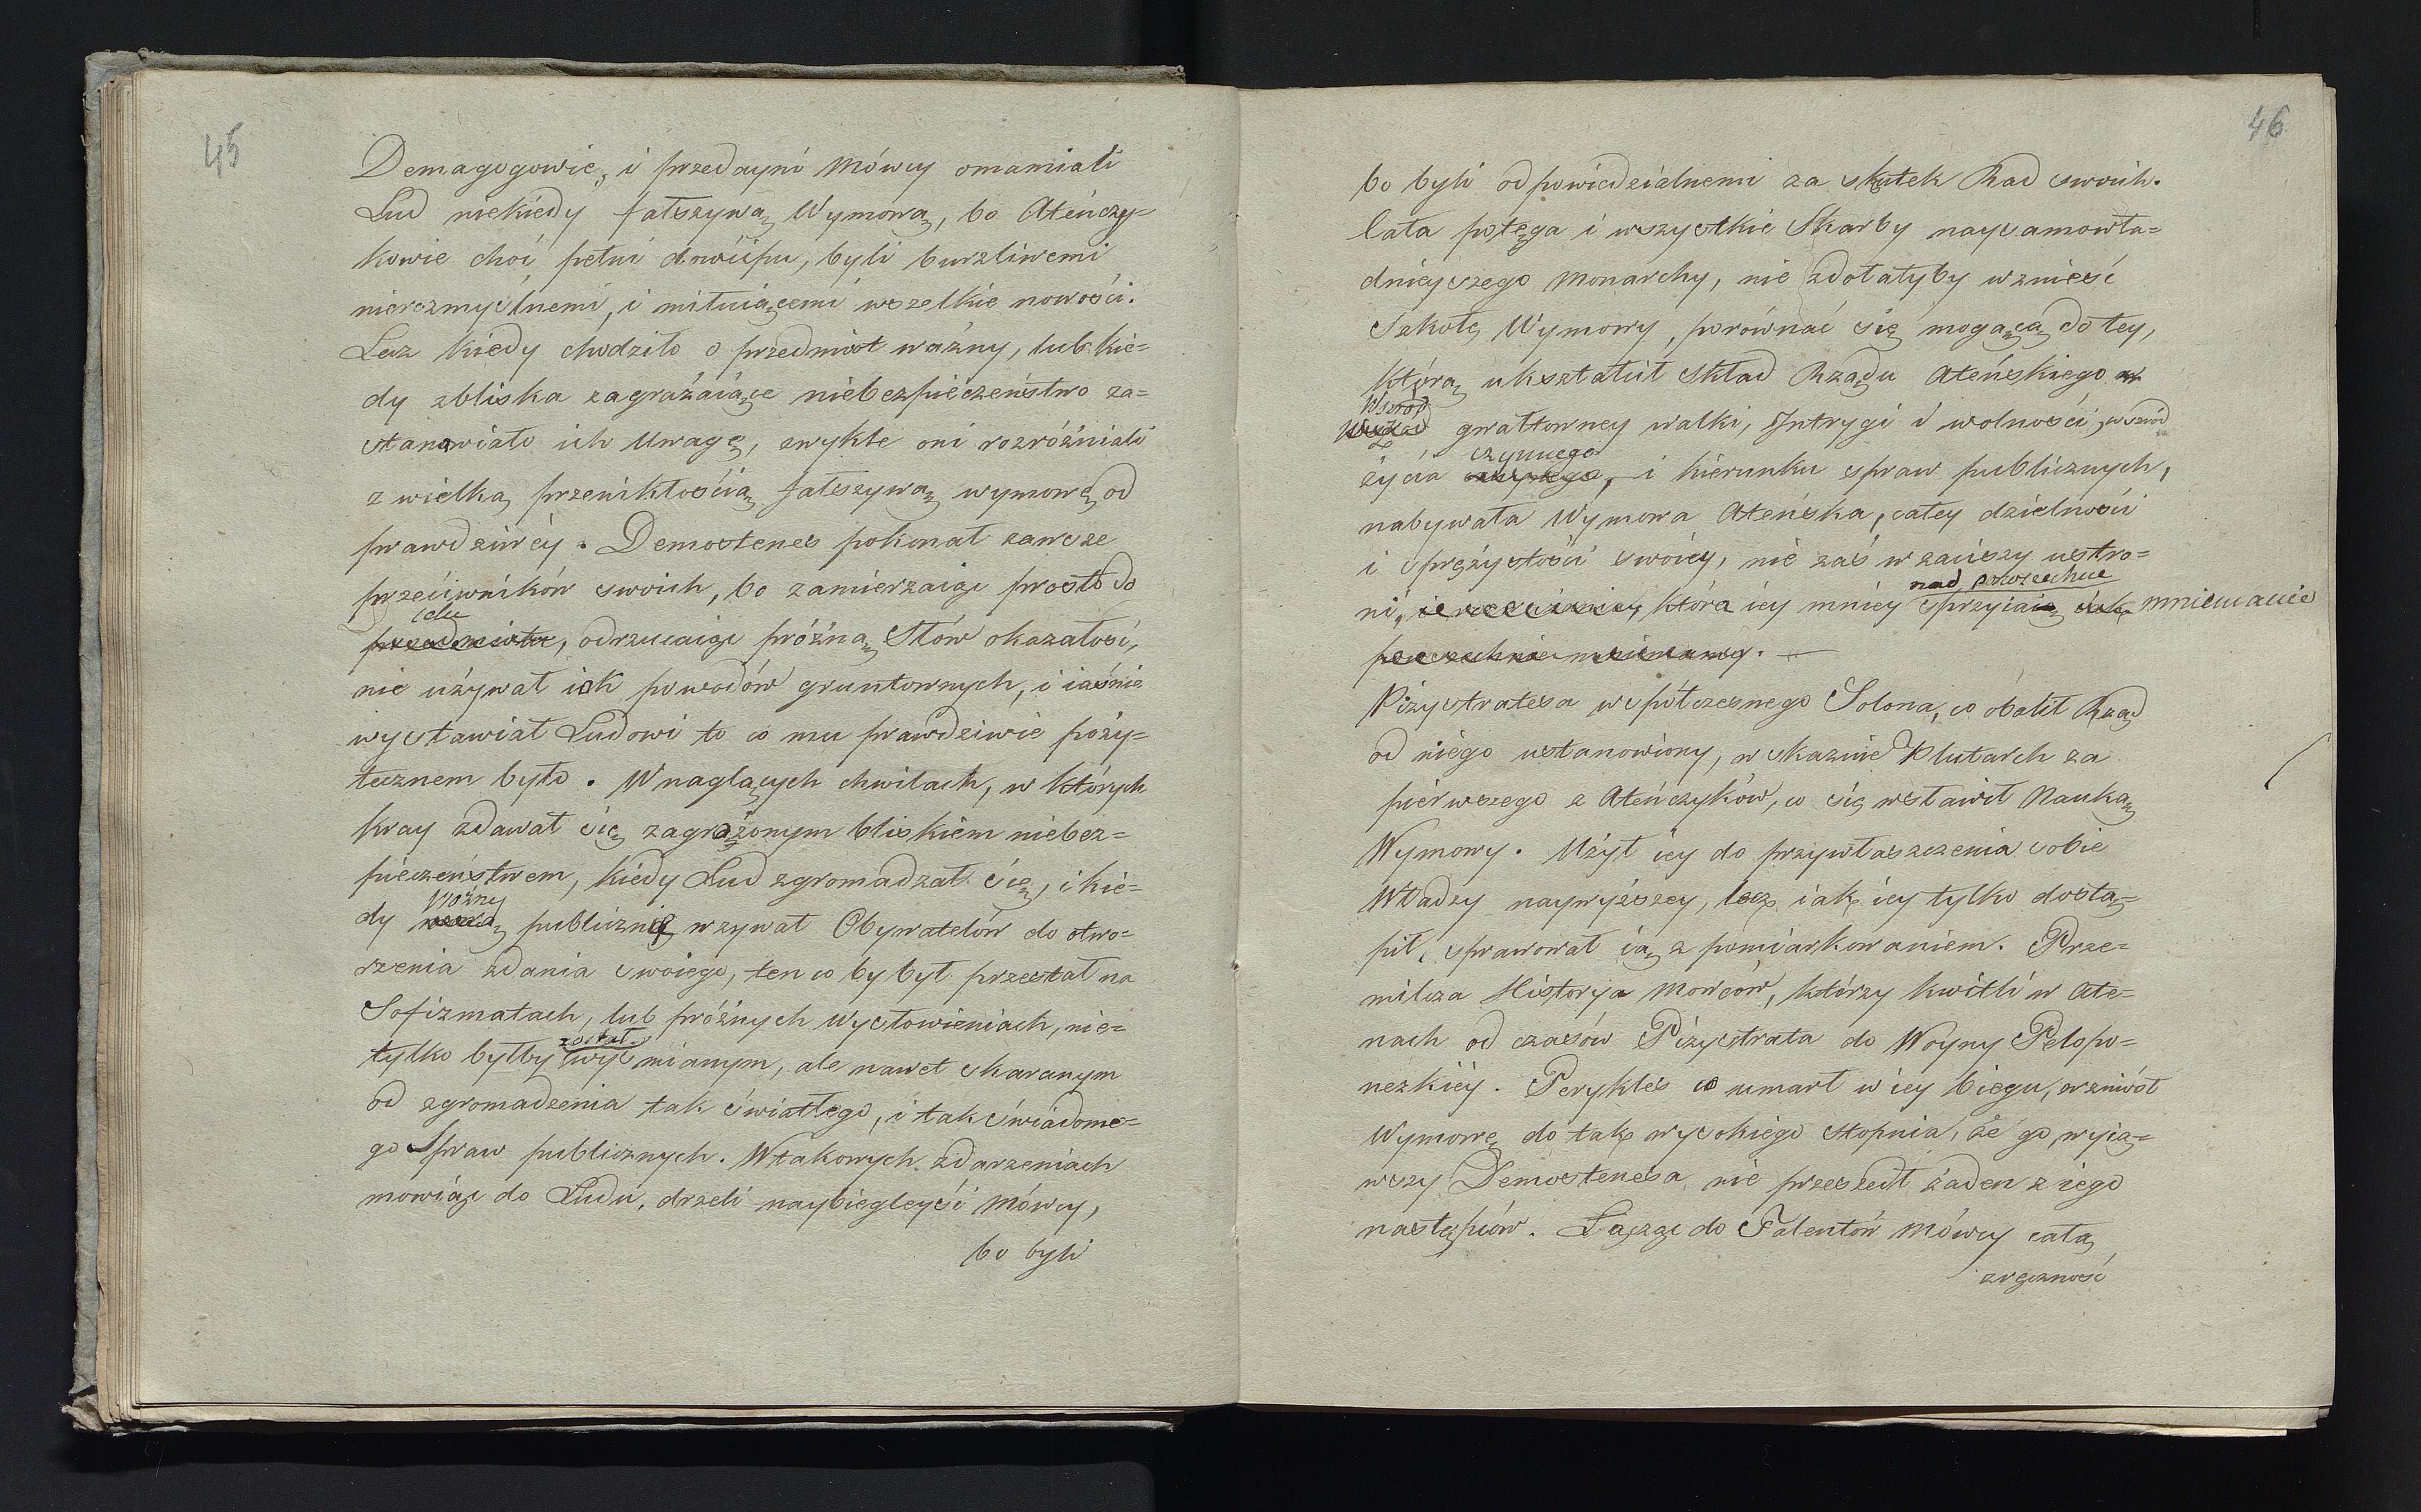 45
Demagogowie, i przedayni Mówcy omamiali
Lud niekiedy fałszywą Wymową, bo Ateńczy=
kowie choć pełni dowcipu, byli burzliwemi
nierozmyślnemi, i miłuiącemi wszelkie nowości.
Lecz kiedy chodziło o przedmiot ważny, lub kie=
dy zbliska zagrażaiące niebezpieczeństwo za=
stanawiało ich Uwagę, zwykle oni rozróżniali
z wielką przenikłością fałszywą wymowę od
prawdziwéy. Demostenes pokonał zawsze
przeciwników swoich, bo zamierzaiąc prosto do
celu
przedmiotu, odrzucaiąc próżną Słów okazałość,
nie używał iak powodów gruntownych, i iaśnie
wystawiał Ludowi to co mu prawdziwie poży=
tecznem było. W naglących chwilach, w których
Kray zdawał się zagrożonym bliskiém niebez=
pieczeństwem, kiedy Lud zgromadzał się, i kie=
Woźny
dy publiczny wzywał Obywatelów do otwo=
rzenia zdania swoiego, ten co by był przestał na
Sofizmatach, lub próżnych wysłowieniach, nie=
został
tylko byłby wyśmianym, ale nawet skaranym
od zgromadzenia tak światłego, i tak świadome=
go Spraw publicznych. W takowych zdarzeniach
mowiąc do Ludu, drzeli naybiegleyśi Mówcy,
bo byli
46
bo byli odpowiedzialnemi za skutek Rad swoich.
Cała potęga i wszystkie Skarby naysamowła=
dnieyszego Monarchy, nie zdołałyby wznieść
Szkołę Wymowy, porównać się mogącą do tey,
którą ukształcił skład Rządu Ateńskiego
Wsród
gwałtowney walki, Intrygi i wolności, wsród
czynnego
życia i kierunku spraw publicznych,
nabywała Wymowa Ateńska, całey dzielności
i sprężystości swoiéy, nie zaś w zaciszy ustro=
nad powszechne
ni, która iey mniey sprzyia mniemanie
powszechnie mniemany.
Pizystratesa współczesnego Solona, co obalił Rząd
od niego ustanowiony, wskazuie Plutarch za
pierwszego z Ateńczyków, co się wsławił Nauką
Wymowy. Użył iey do przywłaszczenia sobie
Władzy naywyższey, lecz iak iey tylko dostą=
pił, sprawował ią z pomiarkowaniem. Prze=
milcza Historya Mowców, którzy kwitli w Ate=
nach od czasów Pizystrata do Woyny Pelopo=
nezkiéy. Perykles co umarł w iey biegu, wzniósł
Wymowę do tak wysokiego stopnia, że go wyią=
wszy Demostenesa nie przeszedł żaden z iego
następców. Łącząc do Talentów Mówcy całą
zręczność